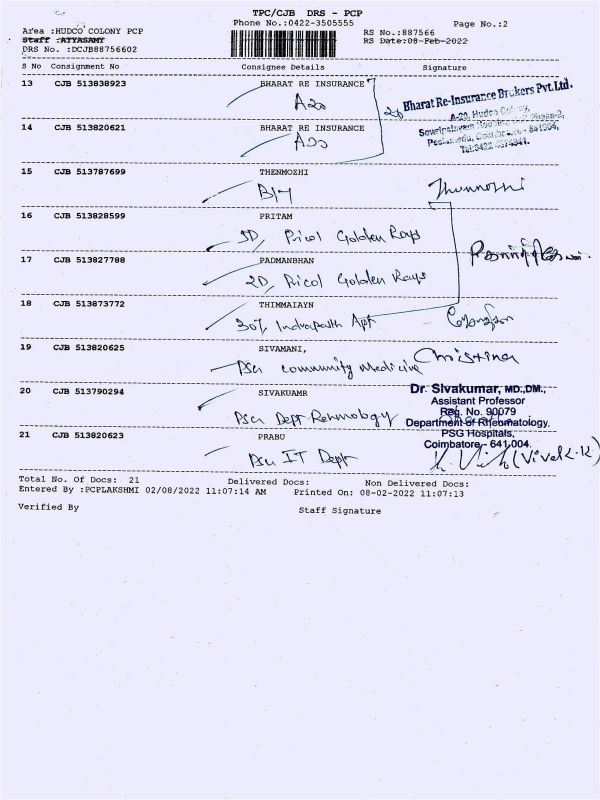 TPC/CJB DRS - PCP
Phone No.:0422-3505555 Page No.:2
Area :HUDCO COLONY PCP RS No.:887566
Staff :AYYASAMY RS Date:08-Feb-2022
DRS No. :DCJB88756602
S No Consignment No Consignee Details Signature
13 CJB 513838923 BHARAT RE INSURANCE
A20
Bharat Re-Insurance Brokers Pvt.Ltd.
A-20, Hudco Colony,
14 CJB 513820621 BHARAT RE INSURANCE
A20
15 CJB 513787699 THENMOZHI
Thenmozhi
16 CJB 513828599 PRITAM
3D, Pricol Golden Rays
17 CJB 513827788 PADMANBHAN
2D, Pricol Golden Rays
18 CJB 513873772 THIMMAIAYN
Apt
19 CJB 513820625 SIVAMANI,
PSG community Medicine Christina
20 CJB 513790294 SIVAKUAMR
PSG Dept
Dr. Sivakumar, MD.,DM.,
Assistant Professor
Reg. No. 90079
Department of Rheumatology.
PSG Hospitals,
Coimbatore - 641 004.
21 CJB 513820623 PRABU
PSG IT Dept
(Vivek.K.K)
Total No. Of Docs: 21 Delivered Docs: Non Delivered Docs:
Entered By :PCPLAKSHMI 02/08/2022 11:07:14 AM Printed On: 08-02-2022 11:07:13
Verified By Staff Signature